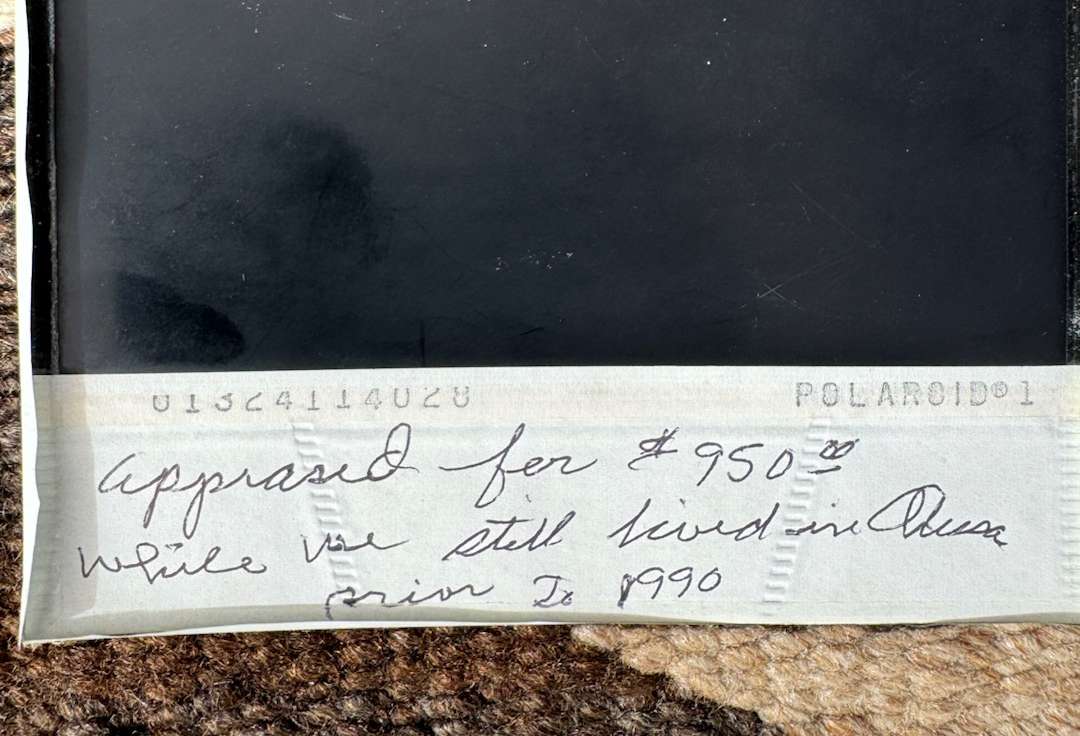 01324114028 POLAROID®1
apprased for $950.00
while we still lived in
prior To 1990